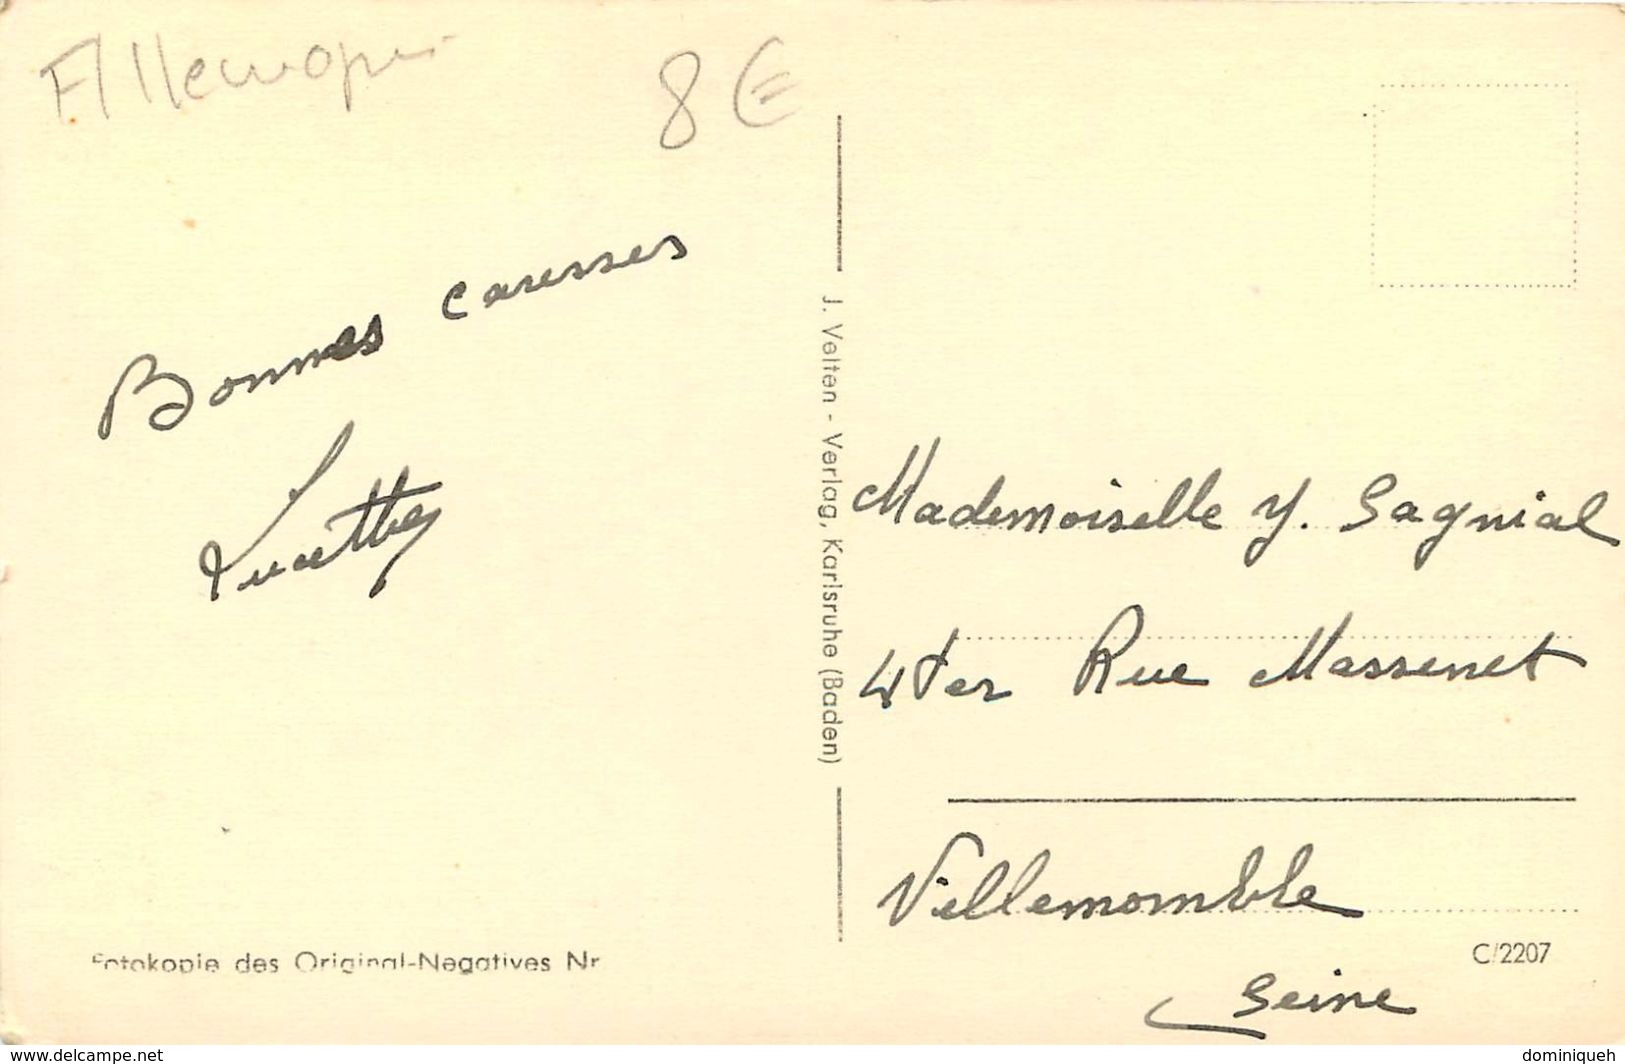 Allemagne
8 €
Bonnes caresses
Lucette
J. Velten - Verlag, Karlsruhe (Baden)
Mademoiselle Y. Sagnial
4 ter Rue Massenet
Villemomble
Seine
Fotokopie des Original-Negatives Nr
C/2207
www.delcampe.net
dominiqueh